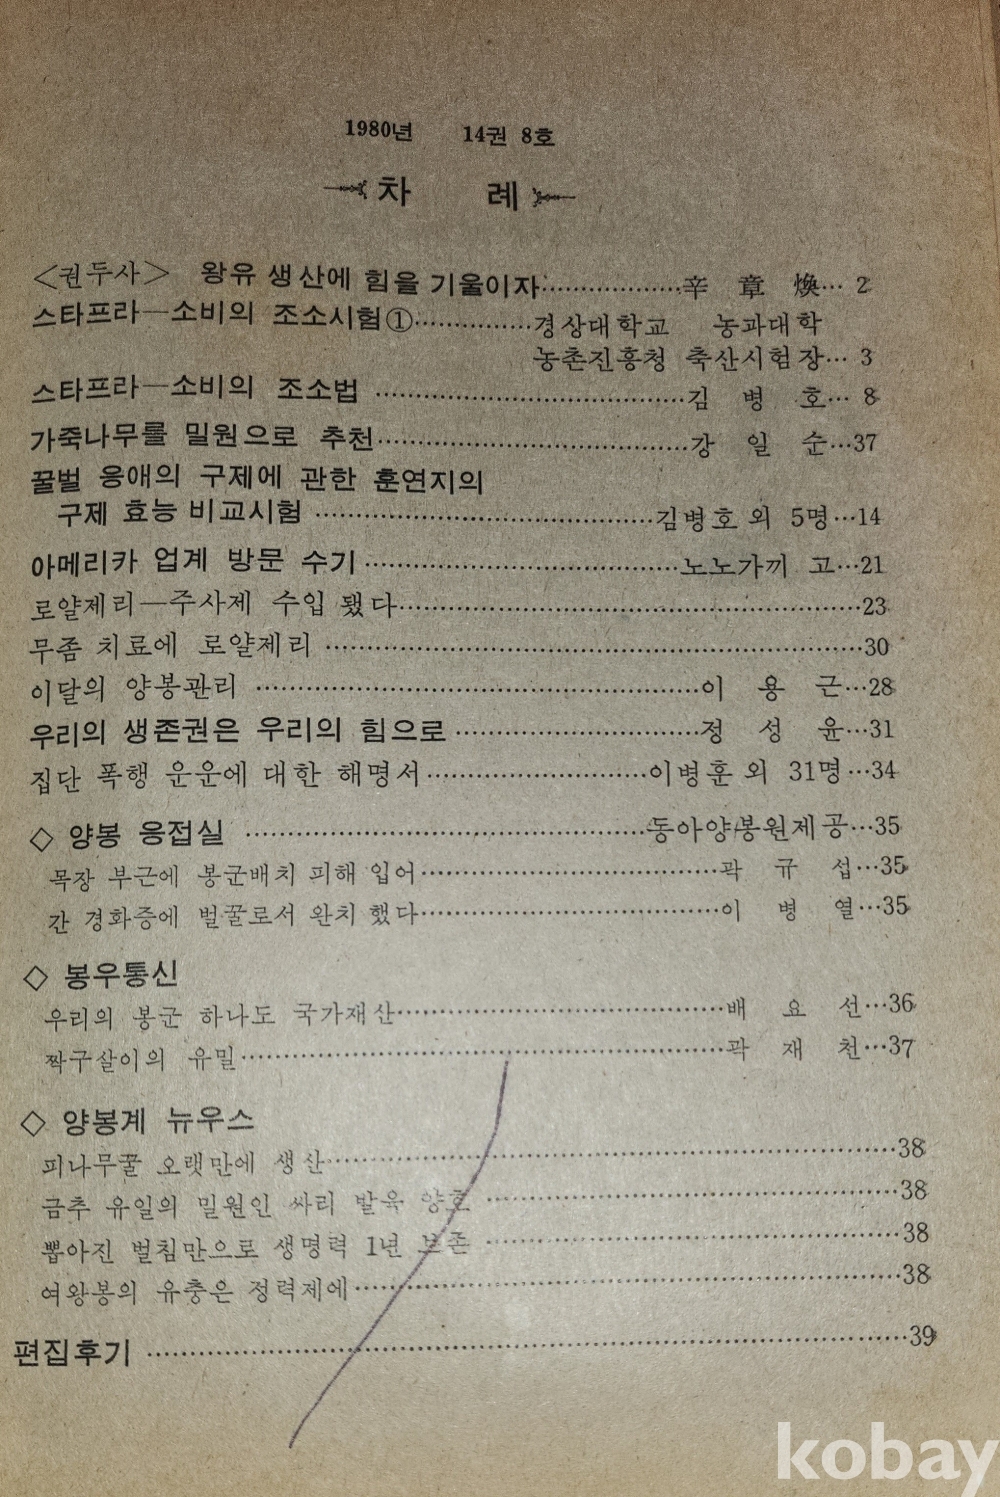 1980년 14권 8호
차 례
<권두사> 왕유 생산에 힘을 기울이자……………辛 章 煥… 2
스타프라—소비의 조소시험①……………경상대학교 농과대학
농촌진흥청 축산시험장… 3
스타프라—소비의 조소법 ……………김 병 호… 8
가죽나무를 밀원으로 추천……………강 일 순…37
꿀벌 응애의 구제에 관한 훈연지의
구제 효능 비교시험 ……………김병호 외 5명…14
아메리카 업계 방문 수기……………노노가끼 고…21
로얄제리—주사제 수입 됐다……………23
무좀 치료에 로얄제리 ……………30
이달의 양봉관리 ……………이 용 근…28
우리의 생존권은 우리의 힘으로 ……………정 성 윤…31
집단 폭행 운운에 대한 해명서……………이병훈 외 31명…34
◇ 양봉 응접실 ……………동아양봉원제공…35
목장 부근에 봉군배치 피해 입어……………곽 규 섭…35
간 경화증에 벌꿀로서 완치 했다……………이 병 열…35
◇ 봉우통신
우리의 봉군 하나도 국가재산……………배 요 선…36
짝구살이의 유밀……………곽 재 천…37
◇ 양봉계 뉴우스
피나무꿀 오랫만에 생산……………38
금추 유일의 밀원인 싸리 발육 양호 ……………38
뽑아진 벌침만으로 생명력 1년 보존 ……………38
여왕봉의 유충은 정력제에……………38
편집후기 ……………39
kobay